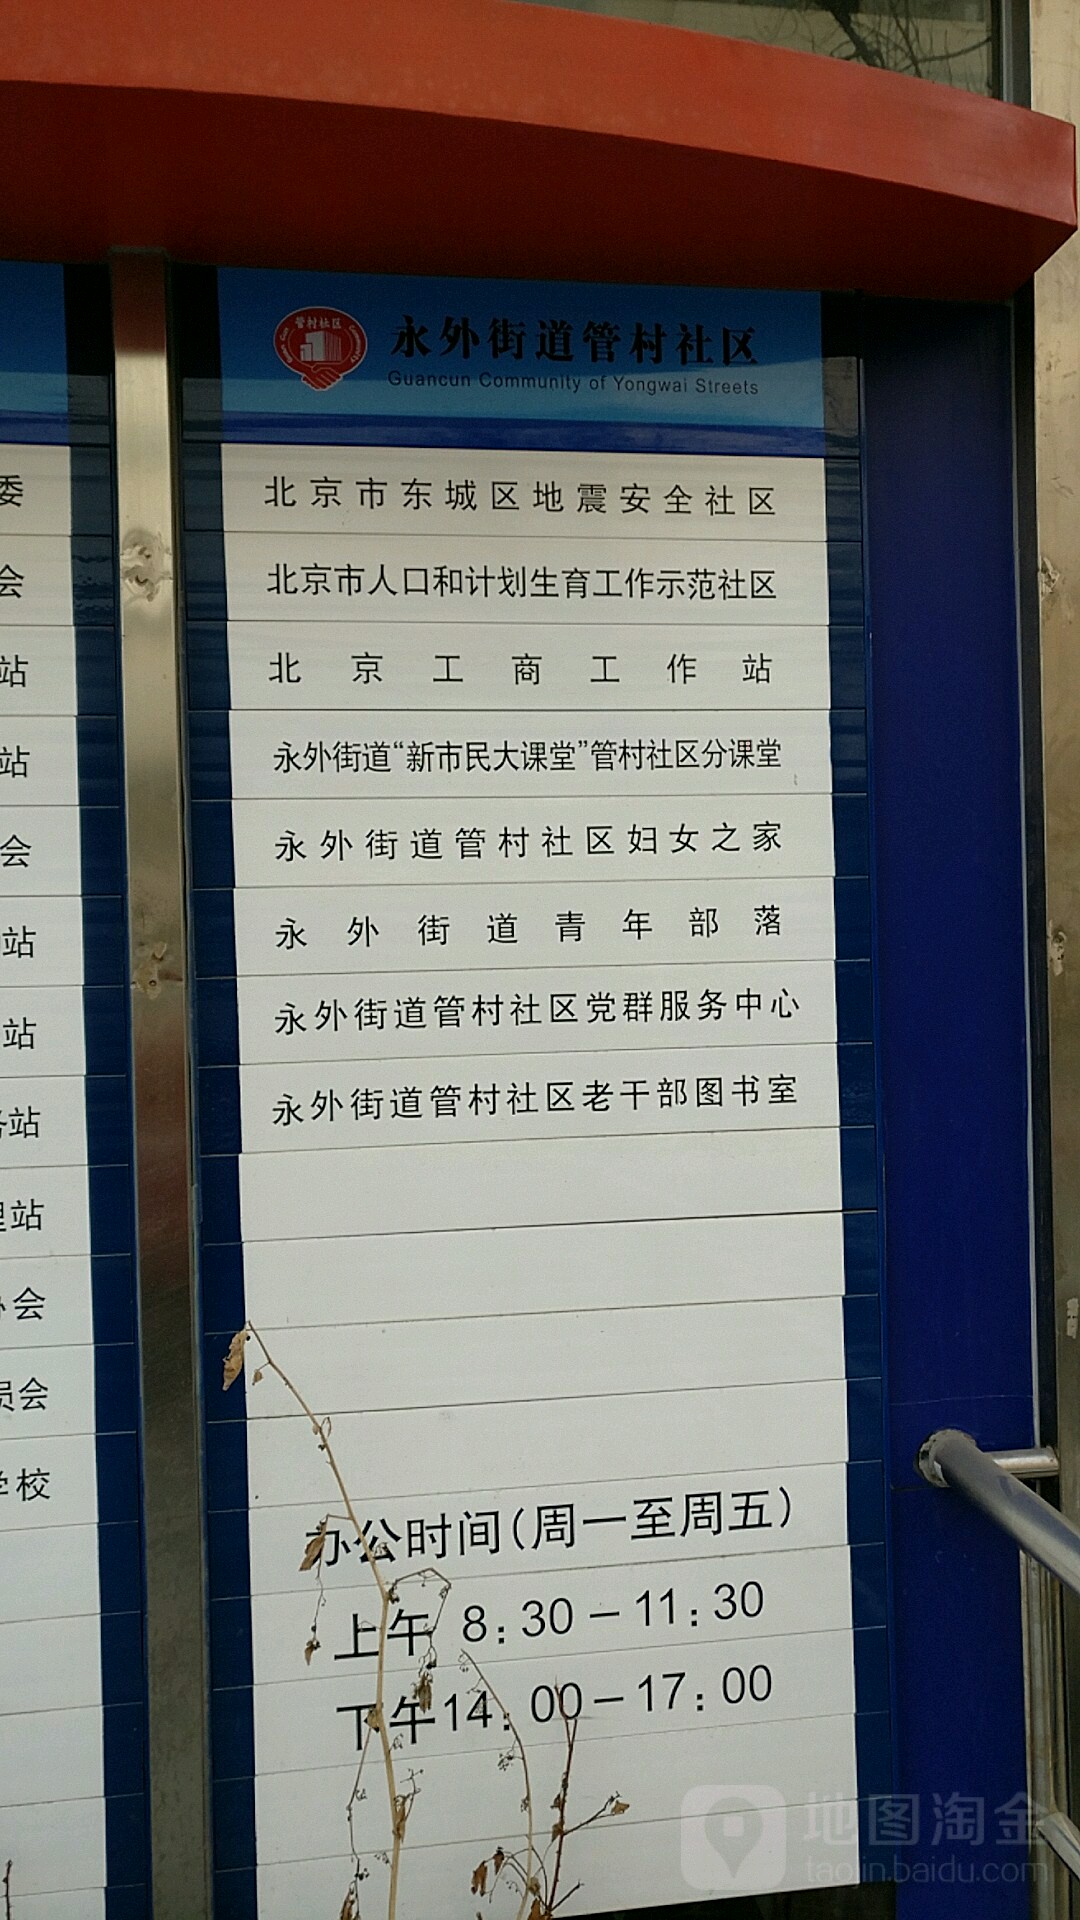 管村社区
永外街道管村社区
Guancun Community of Yongwai Streets
北京市东城区地震安全社区
北京市人口和计划生育工作示范社区
北京工商工作站
永外街道“新市民大课堂”管村社区分课堂
永外街道管村社区妇女之家
永外街道青年部落
永外街道管村社区党群服务中心
永外街道管村社区老干部图书室
办公时间(周一至周五)
上午 8:30－11:30
下午14:00－17:00
委
会
站
站
会
站
站
站
站
会
员会
学校
地图淘金
taojin.baidu.com